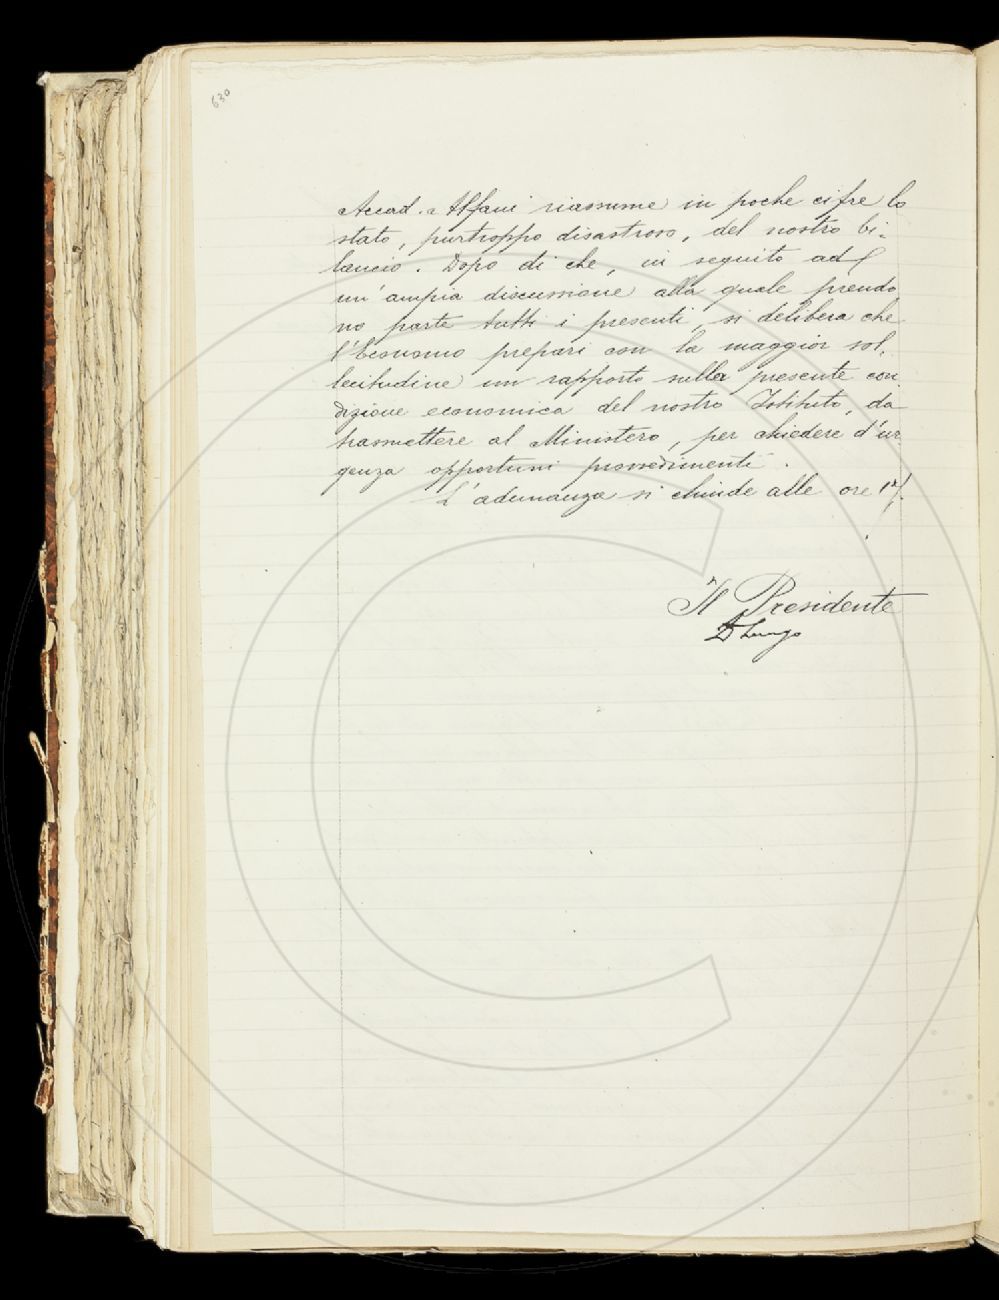 630
Accad. Alfani riassume in poche cifre lo
stato, purtroppo disastroso, del nostro bi-
lancio. Dopo di che, in seguito ad
un'ampia discussione alla quale prendo
no parte tutti i presenti, si delibera che
l'Economo prepari con la maggior sol-
lecitudine un rapporto sulla presente con-
dizione economica del nostro Istituto, da
trasmettere al Ministero, per chiedere d'ur
genza opportuni provvedimenti.
L'adunanza si chiude alle ore
Il Presidente